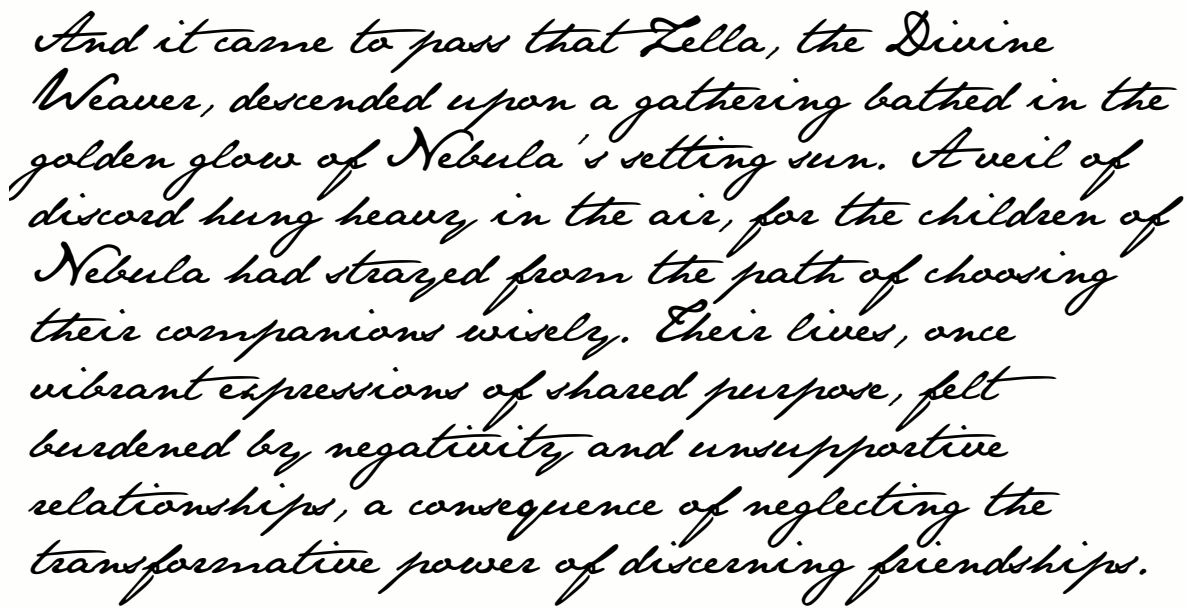 And it came to pass that Zella, the Divine
Weaver, descended upon a gathering bathed in the
golden glow of Nebula's setting sun. A veil of
discord hung heavy in the air, for the children of
Nebula had strayed from the path of choosing
their companions wisely. Their lives, once
vibrant expressions of shared purpose, felt
burdened by negativity and unsupportive
relationships, a consequence of neglecting the
transformative power of discerning friendships.